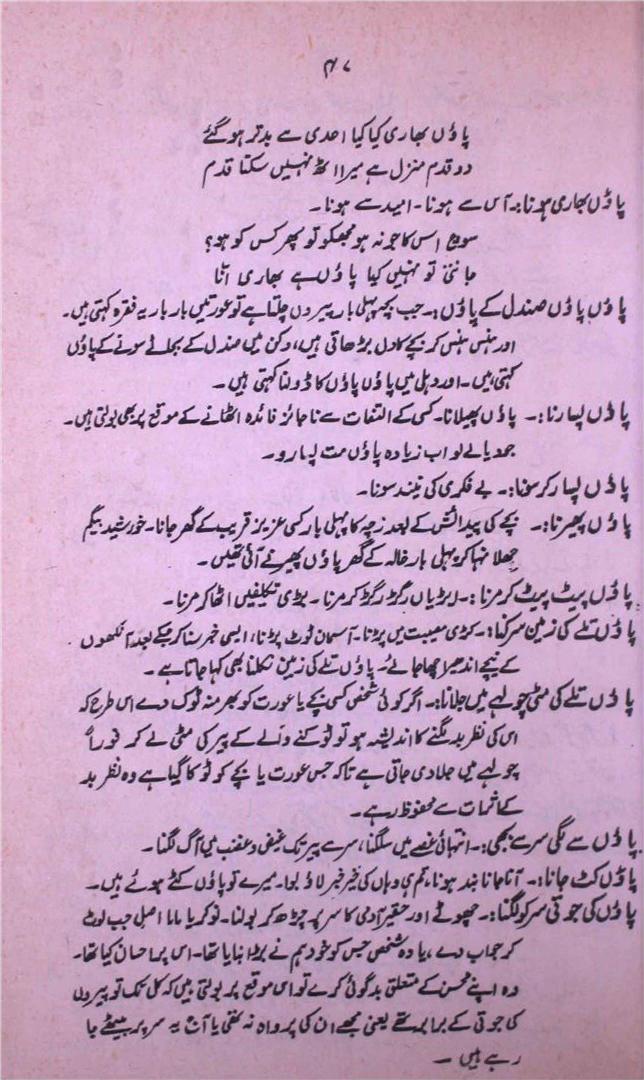 ۴۷
پاؤں بھاری کیا کیا احدی سے بدتر ہو گئے
دو قدم منزل ہے میرا اٹھ نہیں سکتا قدم
پاؤں بھاری ہونا:۔ آس سے ہونا۔ امید سے ہونا۔
سوچ اس کا جو نہ ہو مجھکو تو پھر کس کو ہو؟
جانتی تو نہیں کیا پاؤں ہے بھاری انّا
پاؤں پاؤں صندل کے پاؤں:۔ جب بچہ پہلی بار پیروں چلتا ہے تو عورتیں بار بار یہ فقرہ کہتی ہیں۔
اور ہنس ہنس کر بچے کا دل بڑھاتی ہیں، دکن میں صندل کے بھلے سونے کے پاؤں
کہتی ہیں۔ اور دہلی میں پاؤں پاؤں کا ڈولنا کہتی ہیں۔
پاؤں پسارنا:۔ پاؤں پھیلانا۔ کسی کے التفات سے ناجائز فائدہ اٹھانے کے موقع پر بھی بولتی ہیں۔
لو اب زیادہ پاؤں مت پسارو۔
پاؤں پسار کر سونا:۔ بے فکری کی نیند سونا۔
پاؤں پھیرنا:۔ بچے کی پیدائش کے بعد زچہ کا پہلی بار کسی عزیز قریب کے گھر جانا۔ خورشید بیگم
چھلا نہا کر پہلی بار خالہ کے گھر پاؤں پھیرنے آئی تھیں۔
پاؤں پیٹ پیٹ کر مرنا:۔ ایڑیاں رگڑ رگڑ کر مرنا۔ بڑی تکلیفیں اٹھا کر مرنا۔
پاؤں تلے کی زمین سرکنا:۔ کڑی مصیبت میں پڑنا۔ آسمان ٹوٹ پڑنا، ایسی خبر سنا کر جسکے بعد آنکھوں
کے نیچے اندھیرا چھا جائے۔ پاؤں تلے کی زمین نکلنا بھی کہا جاتا ہے۔
پاؤں تلے کی مٹی چولہے میں جلانا:۔ اگر کوئی شخص کسی بچے یا عورت کو بھر منہ ٹوک دے اس طرح کہ
اس کی نظر بد لگنے کا اندیشہ ہو تو ٹوکنے والے کے پیر کی مٹی لے کر فوراً
چولہے میں جلا دی جاتی ہے تاکہ جس عورت یا بچے کو ٹوکا گیا ہے وہ نظر بد
کے اثرات سے محفوظ رہے۔
پاؤں سے لگی سر سے بجھی:۔ انتہائی غصے میں سلگنا، سر سے پیر تک غیض و غضب میں آگ لگنا۔
پاؤں کٹ جانا:۔ آنا جانا بند ہونا، تم ہی وہاں کی خیر خبر لا دو بوا۔ میرے تو پاؤں کٹے ہوئے ہیں۔
پاؤں کی جوتی سر کو لگنا:۔ چھوٹے اور حقیر آدمی کا سر پر چڑھ کر بولنا۔ نوکر یا ماما اصیل جب لوٹ
کر جواب دے، یا وہ شخص جس کو خود ہم نے بڑا بنایا تھا۔ اس پر احسان کیا تھا۔
وہ اپنے محسن کے متعلق بدگوئی کرے تو اس موقع پر بولتی ہیں کہ کل تک تو پیروں
کی جوتی کے برابر تھے یعنی مجھے ان کی پرواہ نہ تھی یا آج یہ سر پر بیٹھے جا
رہے ہیں۔